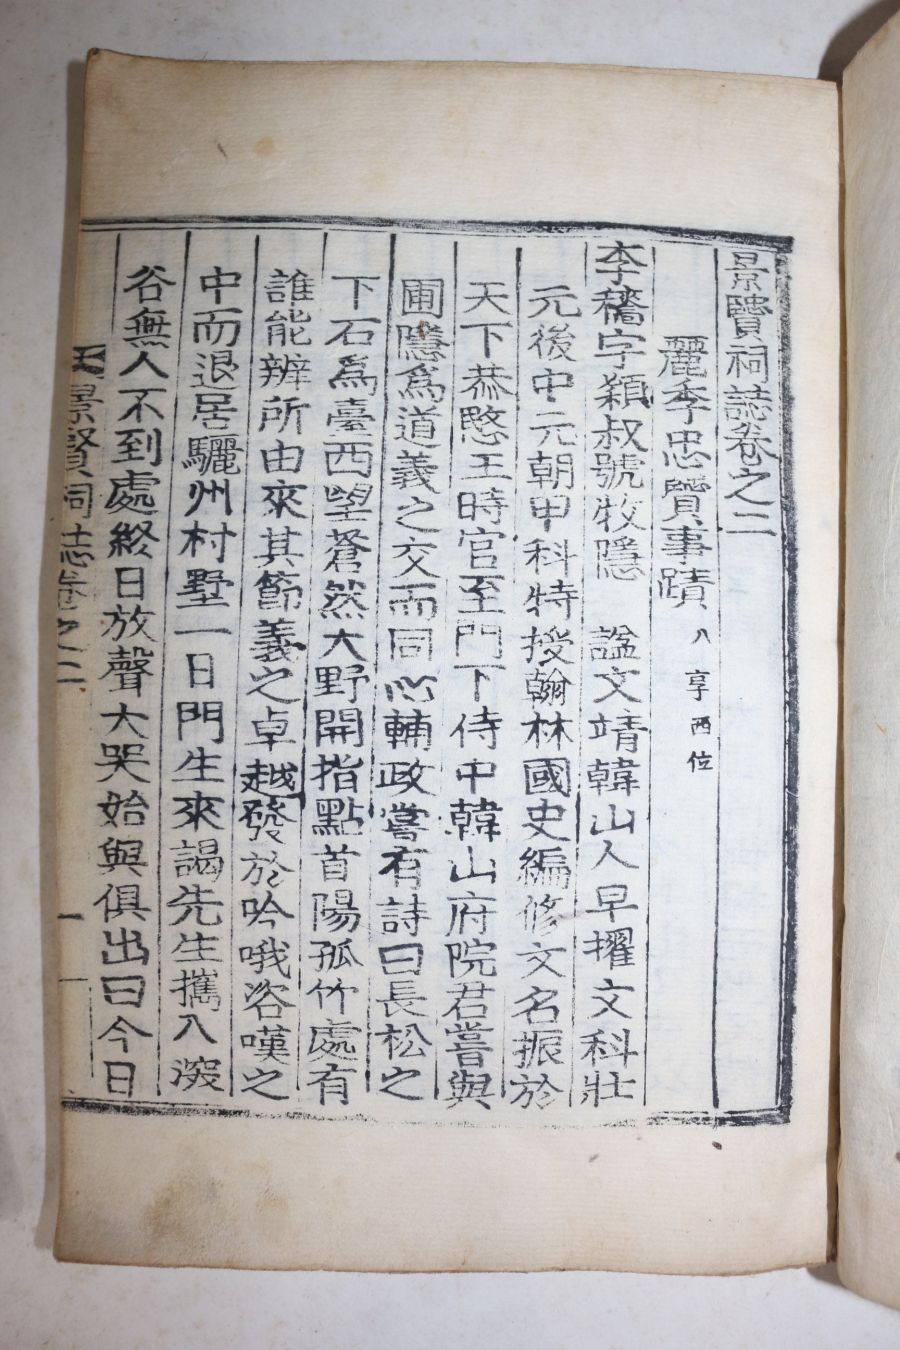 景賢祠誌卷之二
麗季忠賢事蹟 八享西位
李穡字穎叔號牧隱 諡文靖韓山人早擢文科壯
元後中元朝甲科特授翰林國史編修文名振於
天下恭愍王時官至門下侍中韓山府院君嘗與
圃隱爲道義之交而同心輔政嘗有詩曰長松之
下石爲臺西望蒼然大野開指點首陽孤竹處有
誰能辨所由來其節義之卓越發於吟哦咨嘆之
中而退居驪州村墅一日門生來謁先生携入深
谷無人不到處終日放聲大哭始與俱出曰今日
景賢祠誌卷之二 一